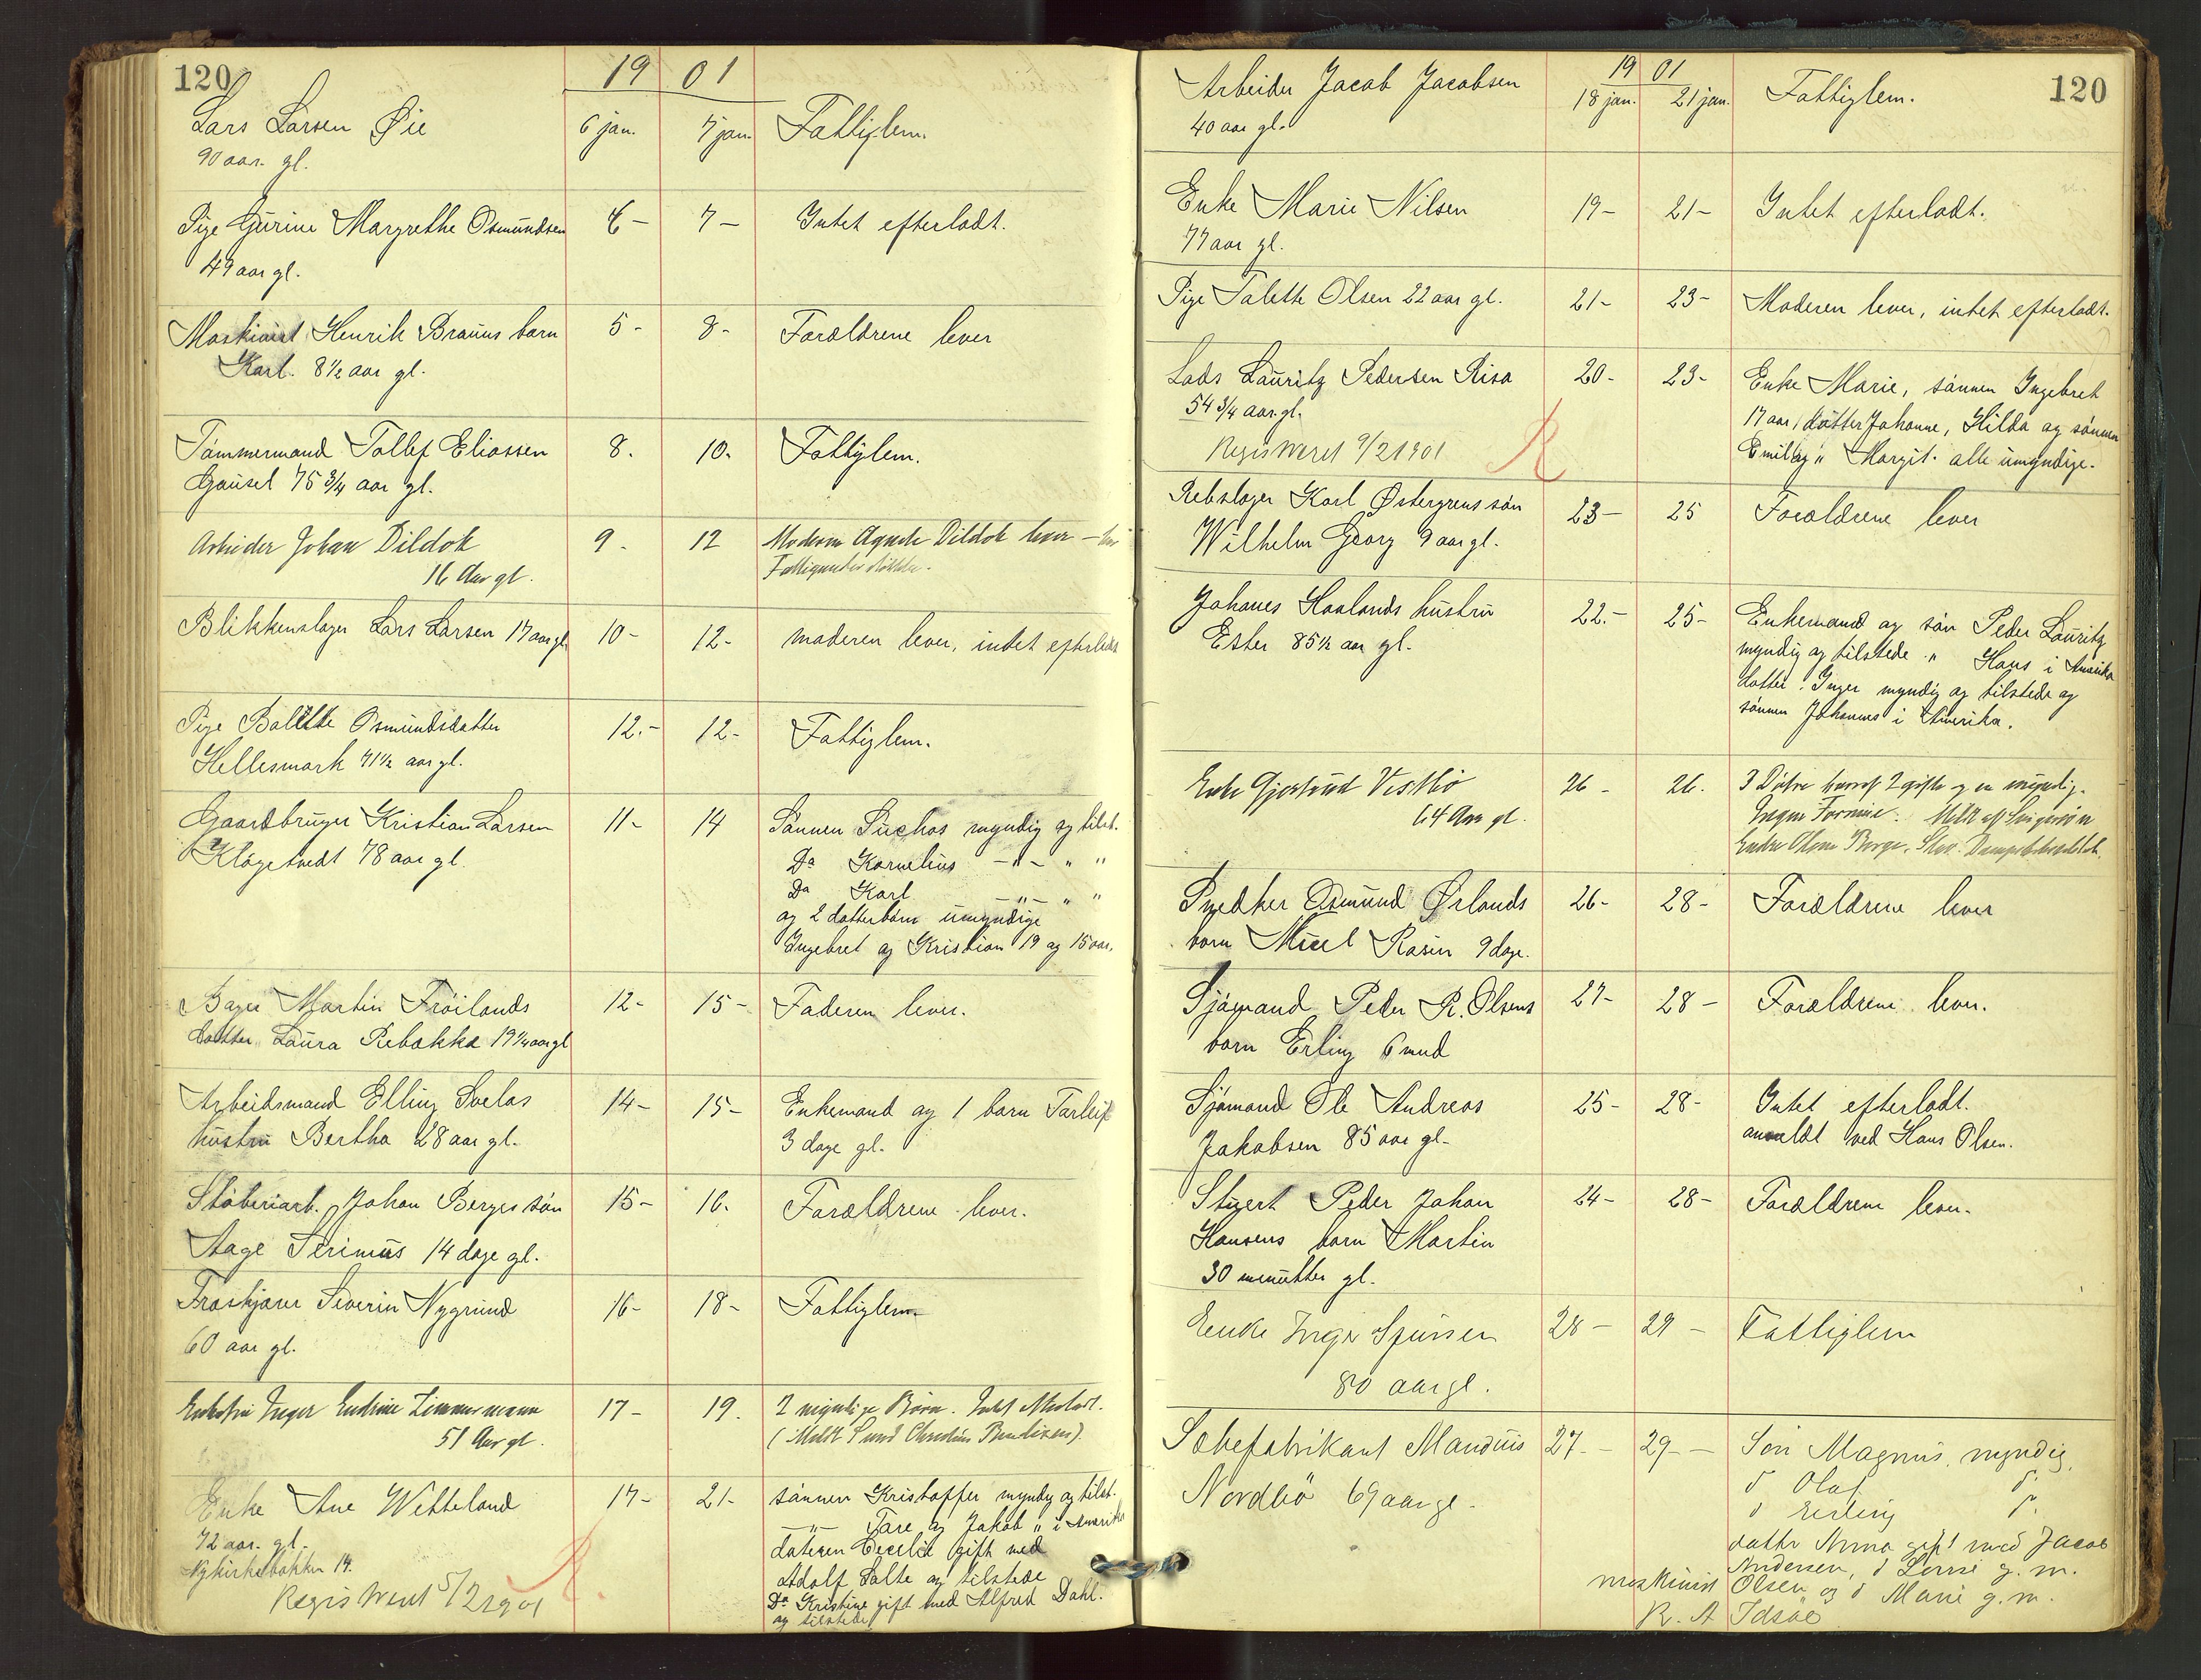 120
19 01
Lars Larsen Øie 6 jan. 7 jan. Fattiglem.
90 aar. gl.
Pige Gurine Margrethe Osmundsen 6 - 7 - Intet efterladt.
49 aar gl.
Maskinist Henrik Brauns barn 5 - 8 - Forældrene lever
Karl. 8 1/2 aar gl.
Tømmermand Tollef Eliassen 8. 10. Fattiglem.
Gausel 75 3/4 aar gl.
Arbeider Johan Dildok 9. 12 Moderen Agnete Dildok lever -
16 Aar gl.
Blikkenslager Lars Larsen 17 aar gl. 10 - 12 - moderen lever, intet efterladt
Pige Bolette Osmundsdatter 12. - 12 - Fattiglem.
Hellesmark 71 1/2 aar gl.
Gaardbruger Kristian Larsen 11 - 14 Sønnen myndig og tilst.
Klagetvedt 78 aar gl. Do Kornelius - " - " "
Do Karl - " - " "
og 2 datterbørn umyndige
Ingebret og Kristian 19 og 15 aar.
Bager Martin Frøilands 12 - 15 - Faderen lever.
datter Laura Rebekka 19 1/4 aar gl
Arbeidsmand Elling Svelas 14 - 15 - Enkemand og 1 barn Torleif
hustru Bertha 28 aar gl. 3 dage gl.
Støberiarb. Johan Berges søn 15 - 16. Forældrene lever.
Aage Serinius 14 dage gl.
Fraskjører Severin Nygrund 16 - 18 - Fattiglem
60 aar gl.
Enkefru Inger Endrine Zimmermann 17 - 19. 2 myndige Børn. Intet efterladt.
51 Aar gl. (Meldt Svend Christian Bendixen).
Enke Ane Wetteland 17 - 21 - sønnen Kristoffer myndig og tilst.
72 aar. gl. - " - Tore og Jakob " i Amerika
Nykirkebakken 14. datteren Cecelie gift med
Adolf Salte og tilstede
Registreret 5/2 1901 R. Do Kristine gift med Alfred Dahl.
og tilstede
120
19 01
Arbeider Jacob Jacobsen 18 jan. 21 jan. Fattiglem.
40 aar gl.
Enke Marie Nilsen 19 - 21 - Intet efterladt.
77 aar gl.
Pige Talette Olsen 22 aar gl. 21 - 23 - Moderen lever, intet efterladt.
Lods Lauritz Pedersen Risa 20 - 23 - Enke Marie, sønnen Ingebret
54 3/4 aar. gl. 17 aar, datter Johanne, Hilda og sønnen
Registreret 9/2 1901 R Emil og " Margit. alle umyndige.
Rebslager Karl Østergrens søn 23 - 25 Forældrene lever
Wilhelm Georg 9 aar gl.
Johanes Haalands hustru 22. - 25 - Enkemand og søn Peder Lauritz
Ester 85 1/2 aar gl. myndig og tilstede " Hans i Amerika
datter Inger myndig og tilstede og
sønnen Johannes i Amerika.
Enke Gjertrud Vestbø 26 - 26. 3 Døtre hvoraf 2 gifte og en myndig.
64 Aar gl.
Snedker Osmund Ørlands 26 - 28 - Forældrene lever
barn Rasin 9 dage.
Sjømand Peder R. Olsens 27 - 28 - Forældrene lever.
barn Erling 6 mnd
Sjømand Ole Andreas 25 - 28 - Intet efterladt.
Jakobsen 85 aar gl - anmeldt ved Hans Olsen.
Stuert Peder Johan 24 - 28 - Forældrene lever.
Hansens barn Martin
30 minutter gl.
Enke Inger Sjursen 28 - 29 - Fattiglem
80 aar gl.
Sæbefabrikant Mauduis 27. - 29 - Søn Magnus, myndig.
Nordbö 69 aar gl. d Olaf d.
d Erling d.
datter Anna gift med Jacob
Andersen, d Lovise g. m.
maskinist Olsen og d Marie g. m.
R. A Idsøe